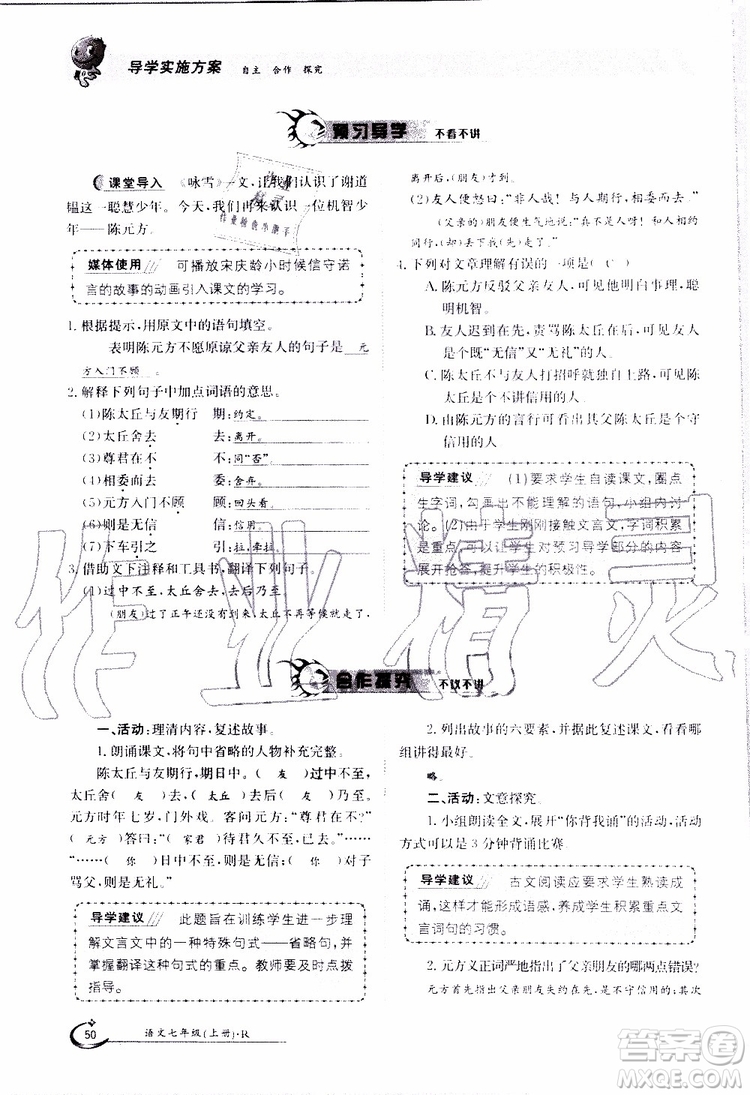 导学实施方案 自主 合作 探究
预习导学 不看不讲
课堂导入 《咏雪》一文,让我们认识了谢道
韫这一聪慧少年。今天,我们再来认识一位机智少
年——陈元方。
媒体使用 可播放宋庆龄小时候信守诺
言的故事的动画引入课文的学习。
1. 根据提示,用原文中的语句填空。
表明陈元方不愿原谅父亲友人的句子是 元
方入门不顾 。
2. 解释下列句子中加点词语的意思。
(1)陈太丘与友期行 期:约定。
(2)太丘舍去 去:离开。
(3)尊君在不 不:同“否”。
(4)相委而去 委:舍弃。
(5)元方入门不顾 顾:回头看。
(6)则是无信 信:信用。
(7)下车引之 引:拉,牵拉。
3. 借助文下注释和工具书,翻译下列句子。
(1)过中不至,太丘舍去,去后乃至。
(朋友)过了正午还没有到,太丘离开了,太丘
离开后,(朋友)才到。
(2)友人便怒曰:“非人哉!与人期行,相委而去。”
(父亲的)朋友便生气地说:“真不是人啊!和
4. 下列对文章理解有误的一项是( C )
A. 陈元方反驳父亲友人,可见他明事理,聪
明机智。
B. 友人迟到在先,责骂陈太丘在后,可见他
是既“无信”又“无礼”的人。
C. 陈太丘没和朋友打招呼就独自上路,可见
陈太丘是个不讲信用的人。
D. 由陈元方的言行可看出其父陈太丘是个守
信用的人
导学建议 (1)要求学生自读课文,圈点
生字词,勾画出不能理解的语句,小组内讨
论。(2)由于学生刚刚接触文言文,字词积累
是重点,可以让学生对预习导学部分的内容
展开抢答,提升学生的积极性。
合作探究 不议不讲
一、活动:理清内容,复述故事。
1. 朗诵课文,将句中省略的人物补充完整。
陈太丘与友期行,期日中。( 友 )过中不至,
太丘舍( 友 )去,( 太丘 )去后( 友 )乃至。
元方时年七岁,门外戏。客问元方:“尊君在不?”
( 元方 )答曰:“( 家君 )待君久不至,已去。”……
“……( 你 )日中不至,则是无信;( 你 )对子
骂父,则是无礼。”
导学建议 此题旨在训练学生进一步理
解文言文中的一种特殊句式——省略句,并
掌握翻译这种句式的重点。教师要为学生做
好指导。
2. 列出故事的六要素,并据此复述课文,看看哪
组讲得最好。
略。
二、活动:文意探究。
1. 小组朗读全文,展开“你背我诵”的活动,活动
方式可以是 3 分钟背诵比赛
导学建议 古文阅读应要求学生熟读成
诵,这样才能形成语感,养成学生积累重点文
言词句的习惯。
2. 元方义正词严地指出了父亲朋友的哪两点错误?
50 语文七年级(上册)·R